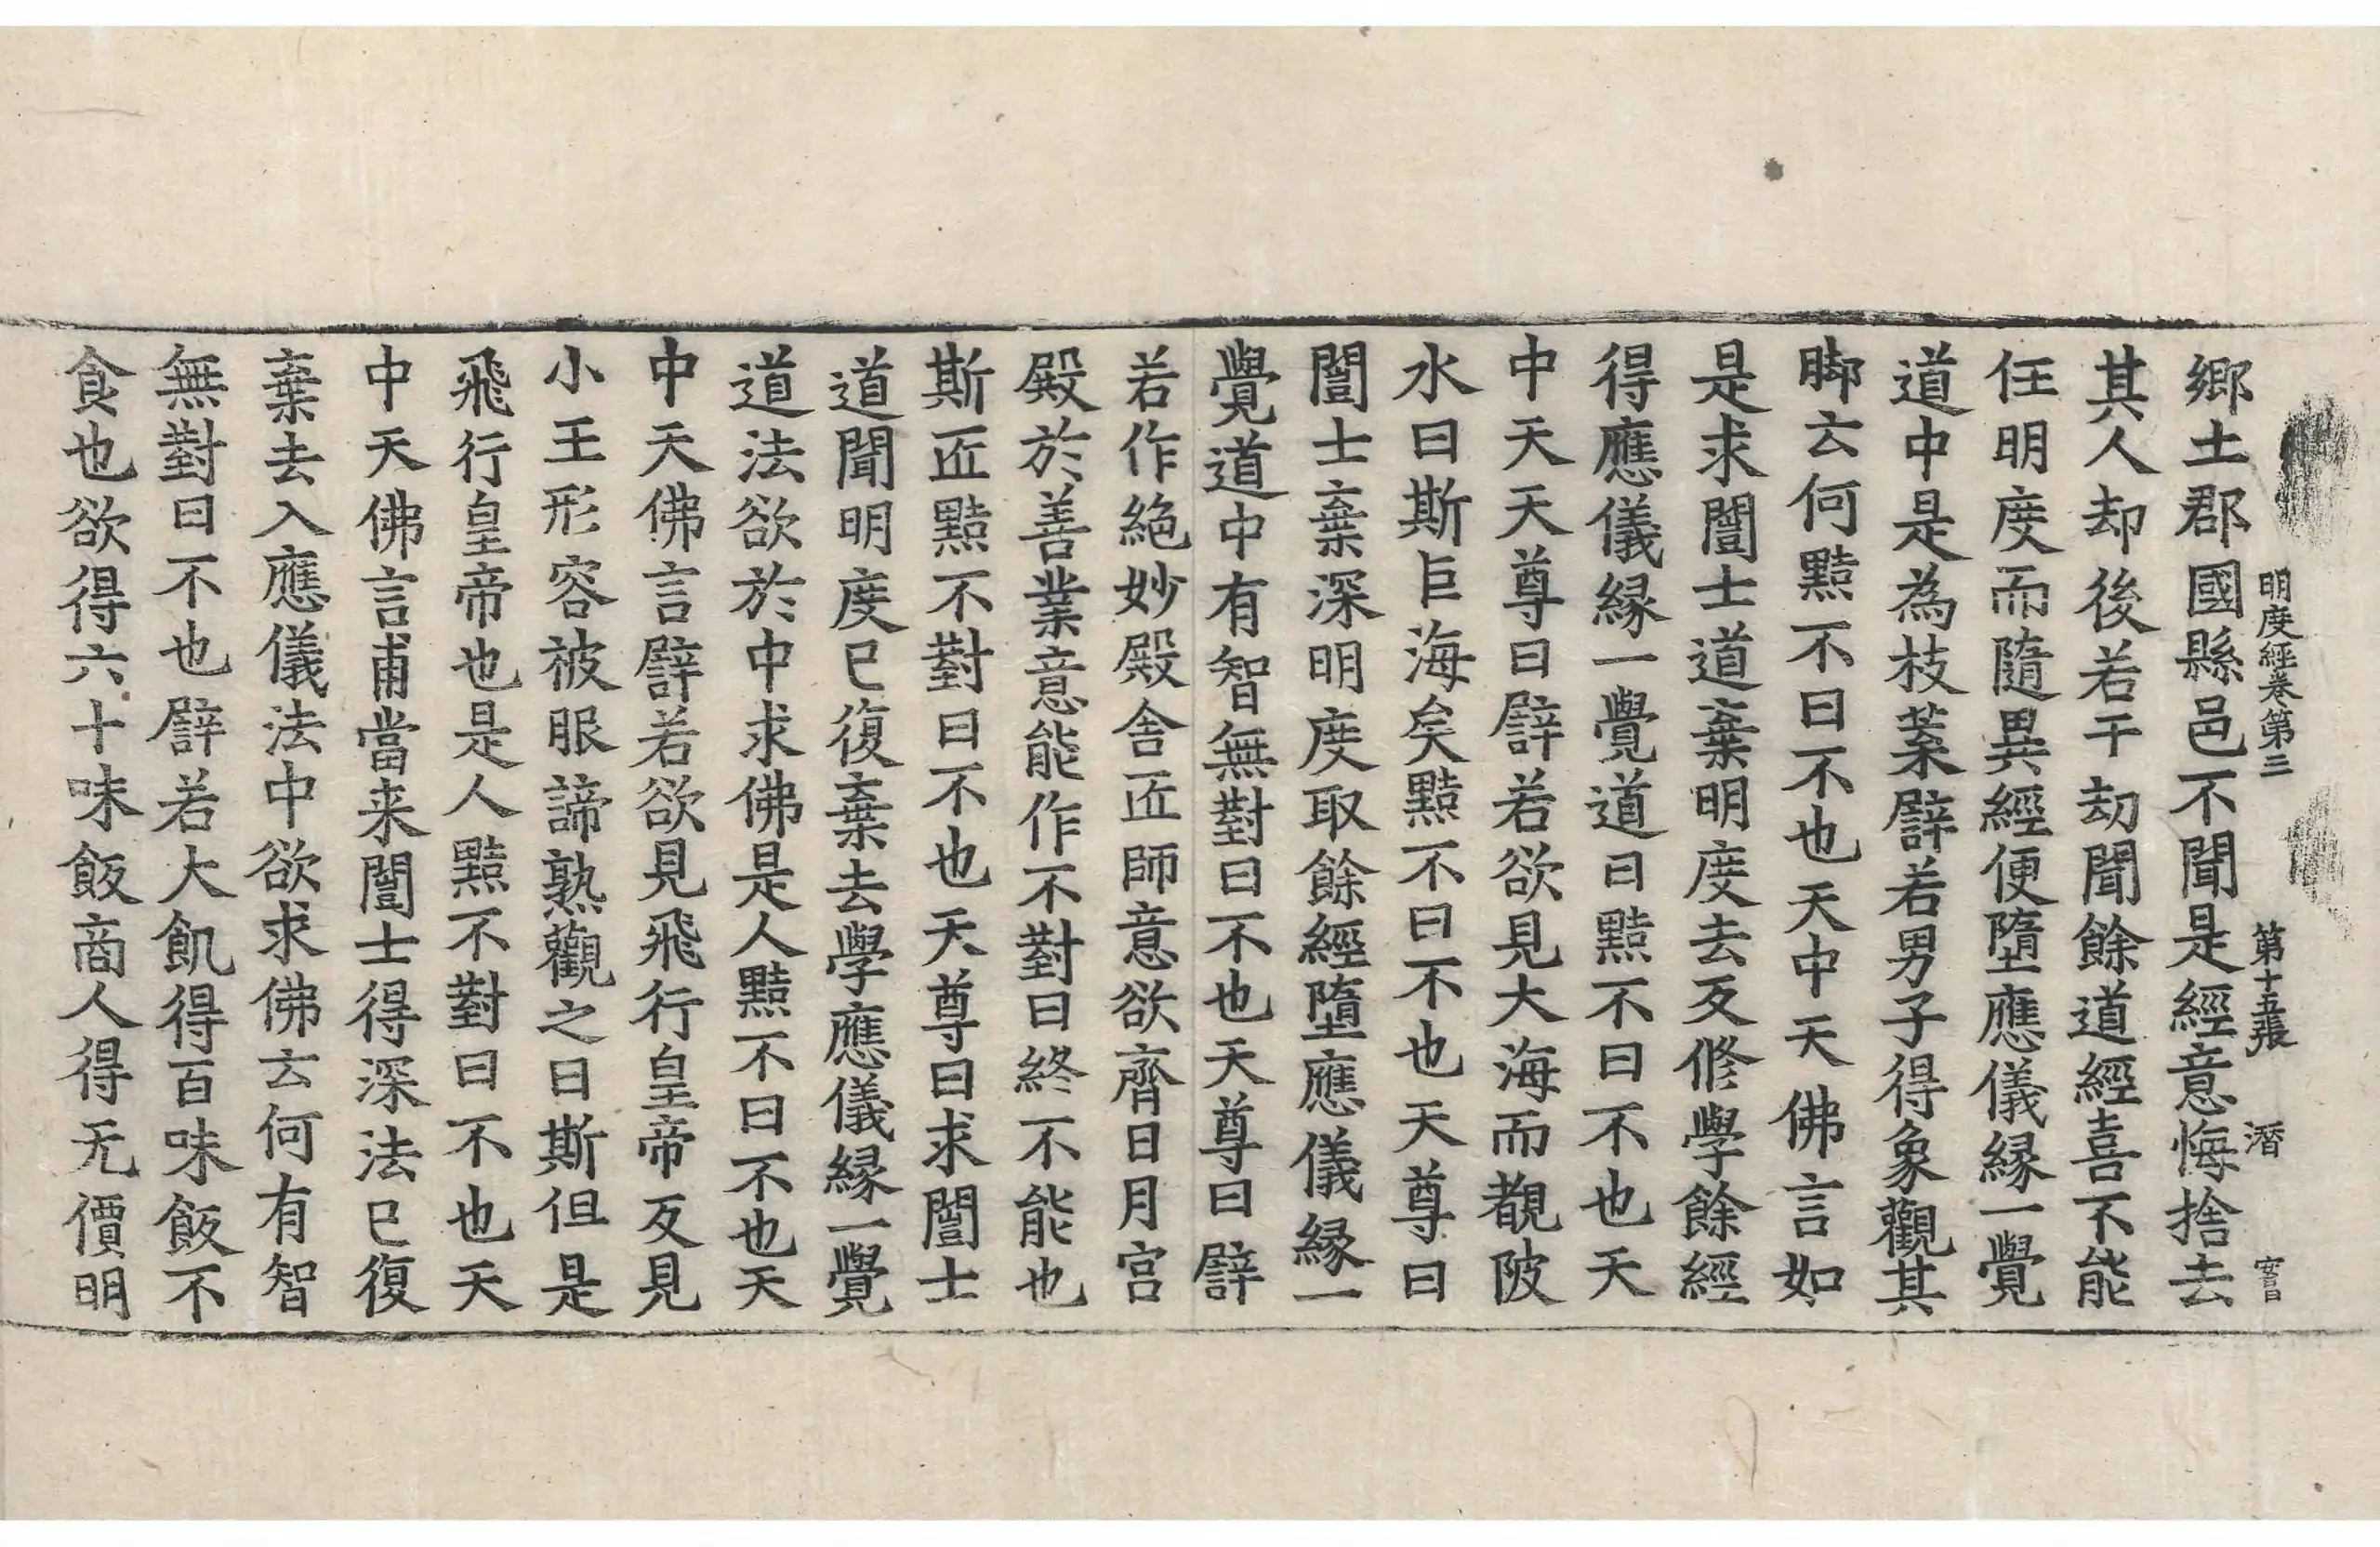 明度經卷第三 第十五張 潛 
鄉土郡國縣邑不聞是經意悔捨去
其人却後若干劫聞餘道經喜不能
任明度而隨異經便墮應儀緣一覺
道中是為枝葉譬若男子得象觀其
脚云何黠不曰不也天中天佛言如
是求闓士道棄明度去反修學餘經
得應儀緣一覺道曰黠不曰不也天
中天天尊曰譬若欲見大海而覩陂
水曰斯巨海矣黠不曰不也天尊曰
闓士棄深明度取餘經墮應儀緣一
覺道中有智無對曰不也天尊曰譬
若作絕妙殿舍匠師意欲齊日月宮
殿於善業意能作不對曰終不能也
斯匠黠不對曰不也天尊曰求闓士
道聞明度已復棄去學應儀緣一覺
道法欲於中求佛是人黠不曰不也天
中天佛言譬若欲見飛行皇帝反見
小王形容被服諦熟觀之曰斯但是
飛行皇帝也是人黠不對曰不也天
中天佛言甫當来闓士得深法已復
棄去入應儀法中欲求佛云何有智
無對曰不也譬若大飢得百味飯不
食也欲得六十味飯商人得无價明